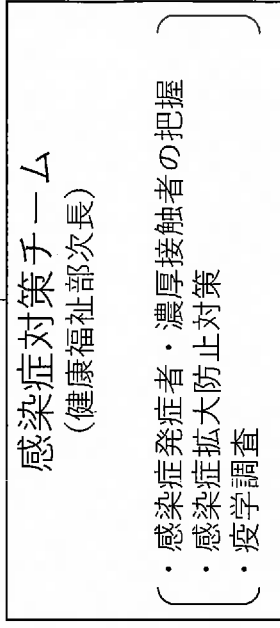 感染症対策チーム
(健康福祉部次長)
・感染症発症者・濃厚接触者の把握
・感染症拡大防止対策
・疫学調査